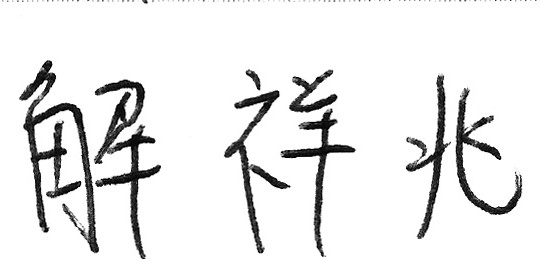 解祥兆